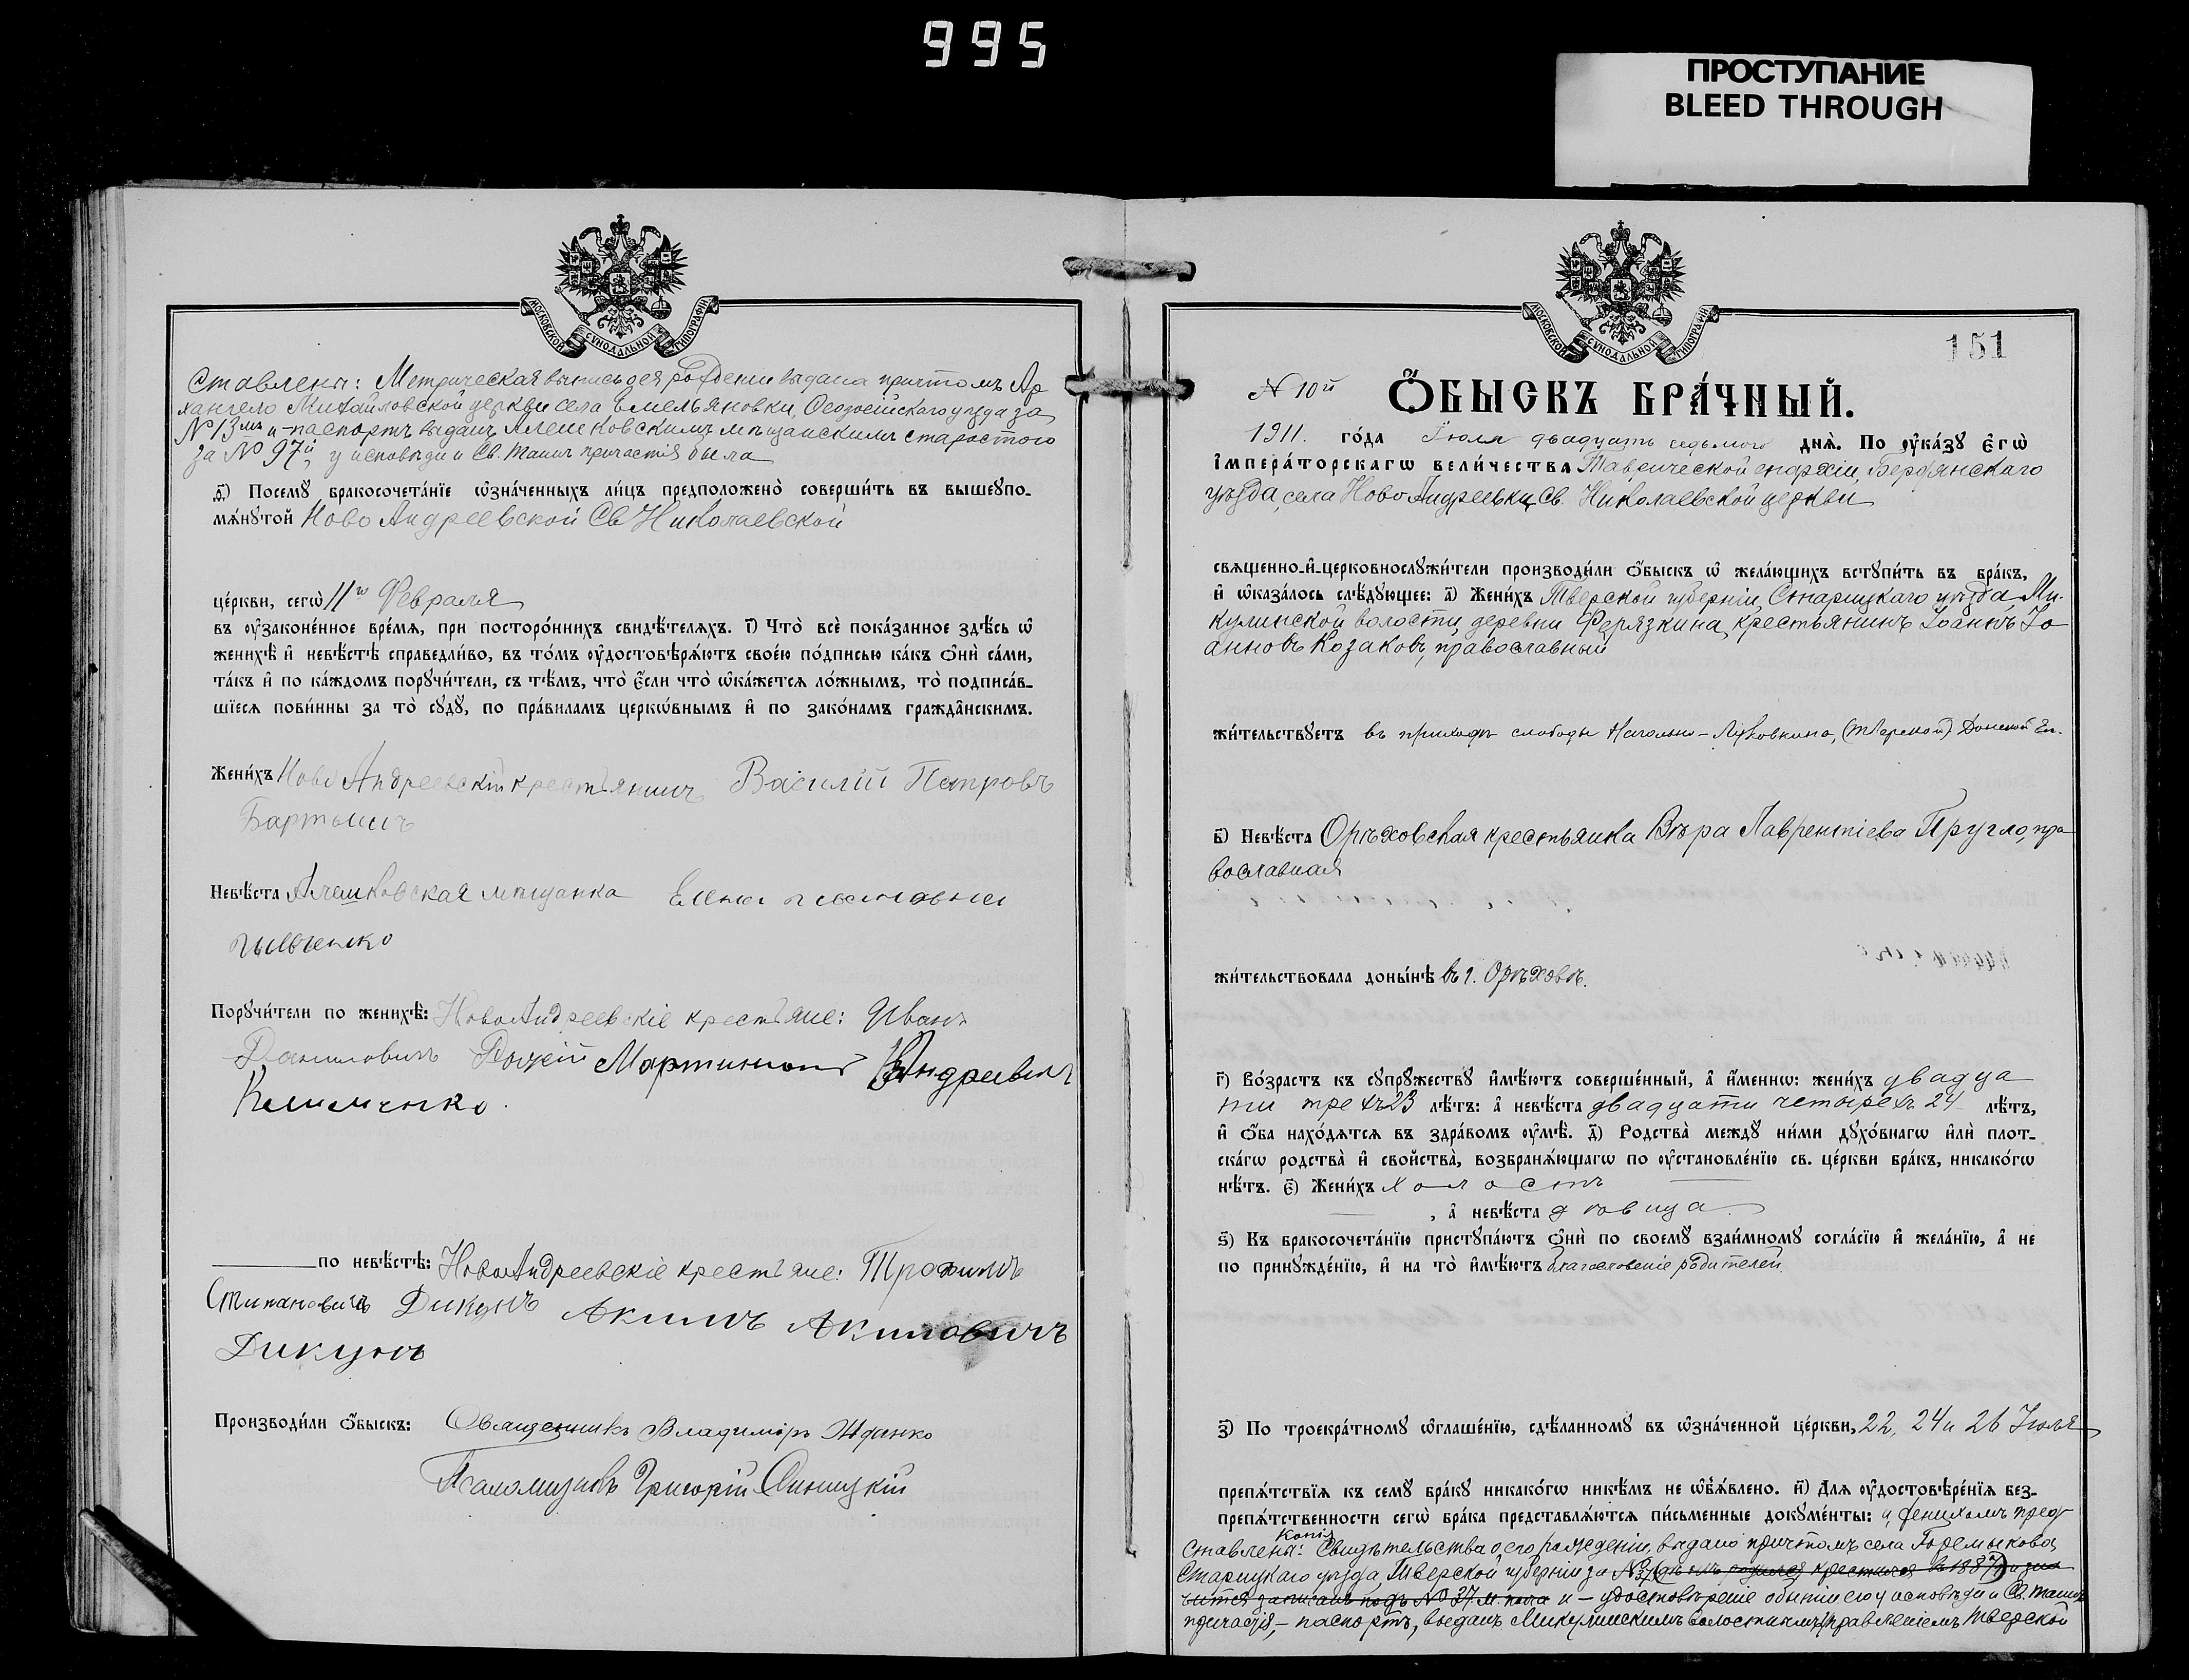 995
ПРОСТУПАНИЕ
BLEED THROUGH
МОСКОВСКОЙ СѴНОДАЛЬНОЙ ТИПОГРАФІИ
ставлены: Метрическая выпись о ея рожденіи выдана причтомъ Ар
хангело Михайловской церкви села Емельяновки, Ѳеодосійскаго уѣзда за
№ 13мъ и паспортъ выданъ Алешковскимъ мѣщанскимъ старостою
за № 97й, у исповѣди и Св. Таинъ причастія была
д҃) Посемꙋ бракосочета́нїе ѡ҆зна́ченныхъ ли́цъ предположено̀ соверши́ть въ вышеꙋпо-
мѧ́нꙋтой Ново Андреевской Св Николаевской
це́ркви, сегѡ̀ 11го Февраля
въ ᲂу҆законе́нное вре́мѧ, при посторо́ннихъ свидѣ́телѧхъ. і҃) Что̀ всѐ пока́занное здѣ́сь ѡ҆
женихѣ̀ и҆ невѣ́стѣ справедли́во, въ то́мъ ᲂу҆достовѣрѧ́ютъ свое́ю по́дписью ка́къ ѻ҆нѝ са́ми,
та́къ и҆ по ка́ждомъ порꙋчи́тели, съ тѣ́мъ, что̀ є҆́сли что̀ ѡ҆ка́жетсѧ ло́жнымъ, то̀ подписа́в-
шїесѧ пови́нны за то̀ сꙋдꙋ̀, по пра́виламъ церкѡ́внымъ и҆ по зако́намъ гражда̑нскимъ.
Жени́хъ Ново Андреевскій крестьянинъ Василій Петровъ
Невѣ́ста Алешковская мѣщанка Елена
Порꙋчи́тели по женихѣ̀: НовоАндреевскіе крестьяне: Иванъ
Даниловичъ Мартинъ Андреевичъ
Клименко.
по невѣ́стѣ: НовоАндреевскіе крестьяне: Трофимъ
Стипановичъ Дикунъ Акимъ Акимовичъ
Дикунъ
Производи́ли ѻ҆́быскъ: Священникъ Владиміръ Жданко
Псаломщикъ Григорій Синицкій
МОСКОВСКОЙ СѴНОДАЛЬНОЙ ТИПОГРАФІИ
151
№ 10й ѺБЫСКЪ БРА́ЧНЫЙ.
1911. го́да Іюля двадцать седьмого днѧ̀. По ᲂу҆ка́зꙋ є҆гѡ̀
і҆мпера́торскагѡ вели́чества Таврической епархіи, Бердянскаго
уѣзда, села НовоАндреевки, Св. Николаевской церкви
свѧщенно-и҆-церковнослꙋжи́тели производи́ли ѻ҆́быскъ ѡ҆ жела́ющихъ встꙋпи́ть въ бра́къ,
и҆ ѡ҆каза́лось слѣ́дꙋющее: а҃) Жени́хъ Тверской губерніи, Старицкаго уѣзда, Ми-
кулинской волости, деревни Ферязкина, крестьянинъ Іоаннъ Іо
анновъ Козаковъ, православный
жи́тельствꙋетъ въ приходѣ слободы Нагольно-
б҃) Невѣ́ста Орѣховская крестьянка Вѣра Лаврентіева Пругло, пра
вославная
жи́тельствовала доны́нѣ въ г. Орѣховѣ.
г҃) Во́зрастъ къ сꙋпрꙋ́жествꙋ и҆мѣ́ютъ соверше́нный, а҆ и҆́меннѡ: жени́хъ двадца
ти трехъ 23 лѣ́тъ: а҆ невѣ́ста двадцати четырехъ 24 лѣ́тъ,
и҆ ѻ҆́ба нахо́дѧтсѧ въ здра́вомъ ᲂу҆мѣ̀. д҃) Родства̀ междꙋ̀ ни́ми дꙋхо́внагѡ и҆лѝ плот-
ска́гѡ родства̀ и҆ сво́йства̀, возбранѧ́ющагѡ по ᲂу҆становле́нїю св. це́ркви бра́къ, никако́гѡ
нѣ́тъ. є҃) Жени́хъ холостъ
, а҆ невѣ́ста дѣвица
ѕ҃) Къ бракосочета́нїю пристꙋпа́ютъ ѻ҆нѝ по своемꙋ̀ взаи́мномꙋ согла́сїю и҆ жела́нїю, а҆ не
по принꙋжде́нїю, и҆ на то̀ и҆мѣ́ютъ благословеніе родителей.
з҃) По троекра́тномꙋ ѡ҆глаше́нїю, сдѣ́ланномꙋ въ ѡ҆зна́ченной це́ркви, 22, 24 и 26 Іюля
препѧ́тствїѧ къ семꙋ̀ бра́кꙋ никако́гѡ никѣ́мъ не ѡ҆б̾ѧ́влено. и҃) Длѧ ᲂу҆достовѣре́нїѧ без-
препѧ́тственности сегѡ̀ бра́ка представлѧ́ютсѧ пи́сьменные докꙋме́нты: а, женихомъ пред
копія
ставлены: Свидѣтельства о его рожденіи, выдано причтомъ села Горемыкова,
Старицкаго уѣзда, Тверской губерніи за №
и - удостовѣреніе о бытіи его у исповѣди и Св. Таинъ
причастія, - паспортъ, выданъ Микулинскимъ волостнымъ правленіемъ Тверской